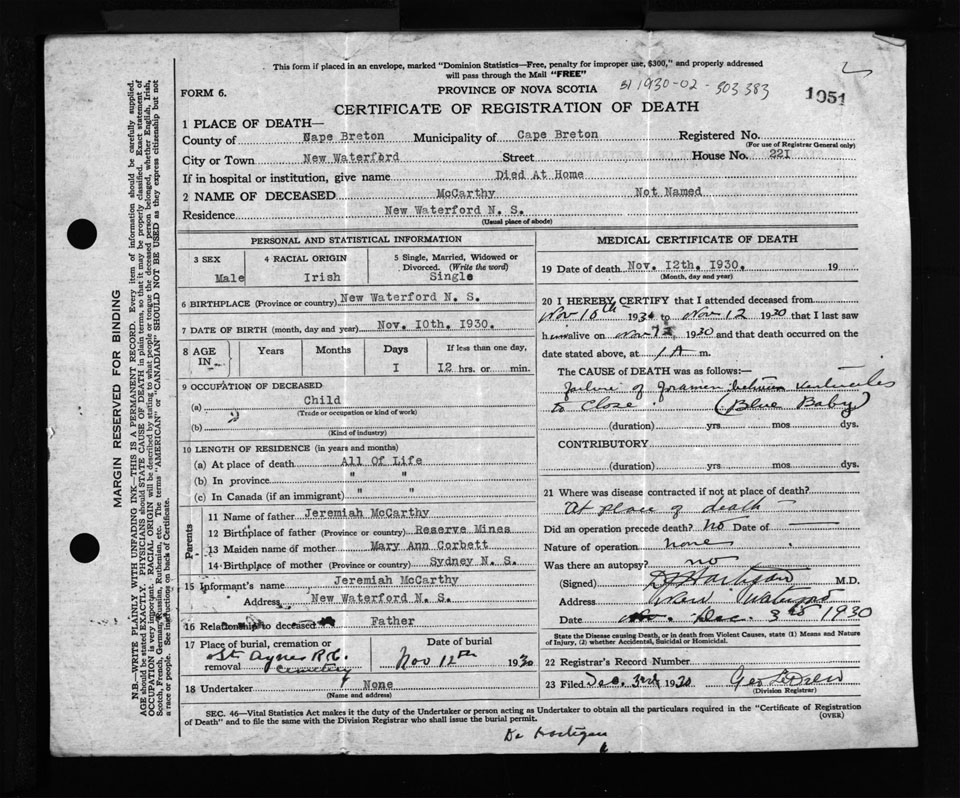 This form if placed in an envelope, marked "Dominion Statistics—Free, penalty for improper use, $300," and properly addressed
will pass through the Mail "FREE"
FORM 6.
PROVINCE OF NOVA SCOTIA
1930-02-503383
1051
CERTIFICATE OF REGISTRATION OF DEATH
1 PLACE OF DEATH—
County of Nape Breton Municipality of Cape Breton Registered No.
(For use of Registrar General only)
City or Town New Waterford Street House No. 22I
If in hospital or institution, give name Died At Home
2 NAME OF DECEASED McCarthy Not Named
Residence New Waterford N. S.
(Usual place of abode)
PERSONAL AND STATISTICAL INFORMATION
3 SEX 4 RACIAL ORIGIN 5 Single, Married, Widowed or
Divorced. (Write the word)
Male Irish Single
6 BIRTHPLACE (Province or country) New Waterford N. S.
7 DATE OF BIRTH (month, day and year) Nov. I0th. I930.
8 AGE
IN
Years Months Days If less than one day,
I I2 hrs. or min.
9 OCCUPATION OF DECEASED
(a) Child
(Trade or occupation or kind of work)
(b)
(Kind of industry)
10 LENGTH OF RESIDENCE (in years and months)
(a) At place of death All Of Life
(b) In province " "
(c) In Canada (if an immigrant) " "
Parents
11 Name of father Jeremiah McCarthy
12 Birthplace of father (Province or country) Reserve Mines
13 Maiden name of mother Mary Ann Corbett
14 Birthplace of mother (Province or country) Sydney N. S.
15 Informant's name Jeremiah McCarthy
Address New Waterford N. S.
16 Relationship to deceased Father
17 Place of burial, cremation or
removal
St Agnes R.C.
Cemetery
Date of burial
Nov 12th 1930
18 Undertaker None
(Name and address)
MEDICAL CERTIFICATE OF DEATH
19 Date of death Nov. I2th. I930. 19
(Month, day and year)
20 I HEREBY CERTIFY that I attended deceased from
Nov 10th 1930 to Nov 12 1930 that I last saw
him alive on Nov 12 1930 and that death occurred on the
date stated above, at 1 A m.
The CAUSE of DEATH was as follows:—
Failure of foramen between Ventricles
to close. (Blue Baby)
(duration) yrs mos dys.
CONTRIBUTORY
(duration) yrs mos dys.
21 Where was disease contracted if not at place of death?
At place of death
Did an operation precede death? No Date of —
Nature of operation none
Was there an autopsy? no
(Signed) M.D.
Address New Waterford
Date Dec. 3rd 1930
State the Disease causing Death, or in death from Violent Causes, state (1) Means and Nature
of Injury, (2) whether Accidental, Suicidal or Homicidal.
22 Registrar's Record Number
23 Filed Dec. 3rd 1930
(Division Registrar)
SEC. 46—Vital Statistics Act makes it the duty of the Undertaker or person acting as Undertaker to obtain all the particulars required in the "Certificate of Registration
of Death" and to file the same with the Division Registrar who shall issue the burial permit.
(OVER)
MARGIN RESERVED FOR BINDING
N.B.—WRITE PLAINLY WITH UNFADING INK—THIS IS A PERMANENT RECORD. Every item of information should be carefully supplied.
AGE should be stated EXACTLY. PHYSICIANS should STATE CAUSE OF DEATH in plain terms, so that it may be properly classified. Exact statement of
OCCUPATION is very important. RACIAL ORIGIN will be described by stating to what people or tongue the deceased person belonged, whether English, Irish,
Scotch, French, German, Russian, Ruthenian, etc. The terms "AMERICAN" or "CANADIAN" SHOULD NOT BE USED as they express citizenship but not
a race or people. See instructions on back of Certificate.